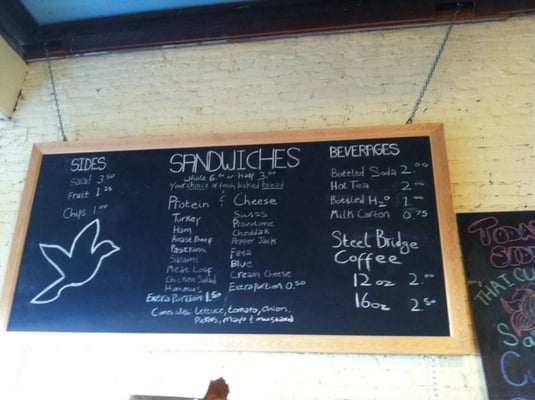 SIDES
Salad 3.50
Fruit 1.25
Chips 1.00
SANDWICHES
whole 6.00 or half 3.50
Your choice of fresh baked bread
Protein & Cheese
Turkey
Ham
Roast Beef
Pastrami
Salami
Meat Loaf
Chicken Salad
Hummus
Extra Portion 1.50
Swiss
Provolone
Cheddar
Pepper Jack
Feta
Blue
Cream Cheese
Extra portion 0.50
Comes with: lettuce, tomato, onion,
Pickles, mayo & mustard
BEVERAGES
Bottled Soda 2.00
Hot Tea 2.00
Bottled H2O 1.00
Milk Carton 0.75
Steel Bridge
Coffee
12oz 2.00
16oz 2.50
THAI